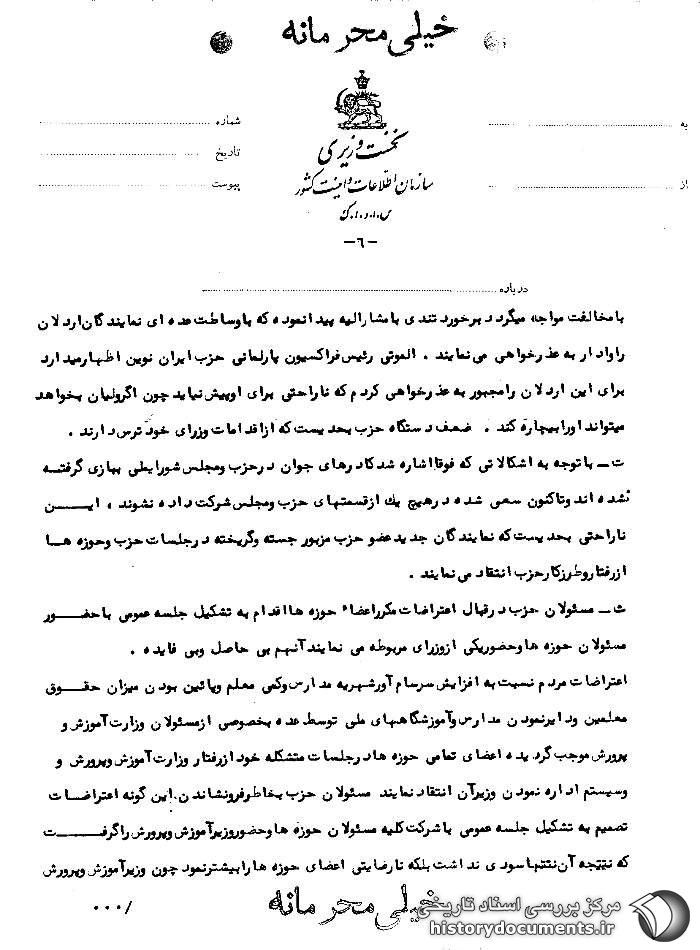 خیلی محرمانه
به
از
شماره
تاریخ
پیوست
نخست وزیری
سازمان اطلاعات و امنیت کشور
س.ا.و.ا.ک
-٦-
درباره
بامخالفت مواجه میگردد برخورد تندی بامشارالیه پیدانموده که باوساطت عده ای نمایندگان اردلان
راوادار به عذرخواهی می نمایند . الموتی رئیس فراکسیون پارلمانی حزب ایران نوین اظهارمیدارد
برای این اردلان رامجبور به عذرخواهی کردم که ناراحتی برای اوپیش نیاید چون اگرولیان بخواهد
میتواند اورابیچاره کند . ضعف دستگاه حزب بحدیست که ازاقدامات وزرای خود ترس دارند .
ت ـ باتوجه به اشکالاتی که فوقااشاره شد کادرهای جوان درحزب ومجلس شورابطی ببازی گرفته
نشده اند وتاکنون سعی شده درهیچ یك ازقسمتهای حزب ومجلس شرکت داده نشوند ، این
ناراحتی بحدیست که نمایندگان جدید عضو حزب مزبور جسته وگریخته درجلسات حزب وحوزه ها
ازرفتاروطرزکارحزب انتقاد می نمایند .
ث ـ مسئولان حزب درقبال اعتراضات مکرراعضاء حوزه هااقدام به تشکیل جلسه عمومی باحضور
مسئولان حوزه هاوحضوریکی ازوزرای مربوطه می نمایند آنهم بی حاصل وبی فایده .
اعتراضات مردم نسبت به افزایش سرسام آورشهریه مدارس وکمی معلم وپائین بودن میزان حقوق
معلمین ودایرنمودن مدارس وآموزشگاههای ملی توسط عده بخصوصی ازمسئولان وزارت آموزش و
پرورش موجب گردیده اعضای تمامی حوزه هادرجلسات متشکله خود ازرفتار وزارت آموزش وپرورش و
وسیستم اداره نمودن وزیرآن انتقاد نمایند مسئولان حزب بخاطرفرونشاندن این گونه اعتراضات
تصمیم به تشکیل جلسه عمومی باشرکت کلیه مسئولان حوزه هاوحضوروزیرآموزش وپرورش راگرفت
که نتیجه آن نتنهاسودی نداشت بلکه نارضایتی اعضای حوزه هارابیشترنمود چون وزیرآموزش وپرورش
خیلی محرمانه
۰۰۰/
مرکز بررسی اسناد تاریخی
historydocuments.ir